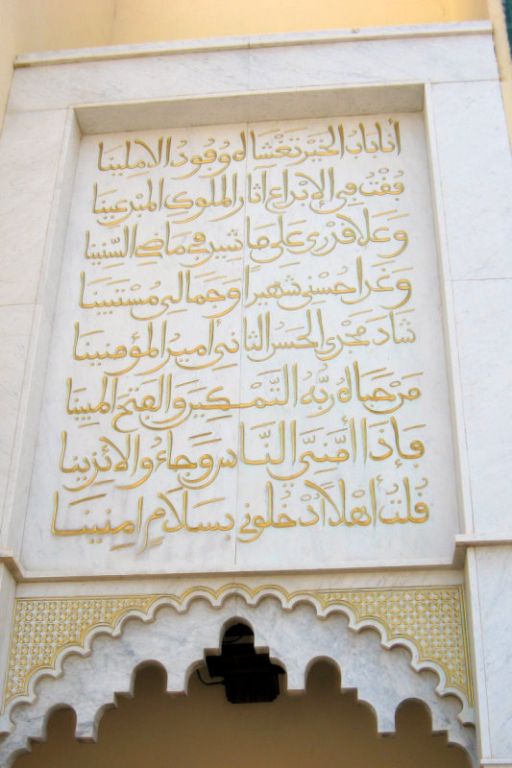 أنا باب الخير تغشاه وفود الاملينا
فقت في الإبداع آثار الملوك المبدعينا
وعلا قدري على ما شيد في ماضي السنينا
وغدا حسني شهيرا وجمالي مستبينا
شاد مجدي الحسن الثاني أمير المؤمنينا
من حباه ربه التمكين والفتح المبينا
فإذا أمني الناس وجاءوا لائذينا
قلت أهلا أدخلوني بسلام امنينا